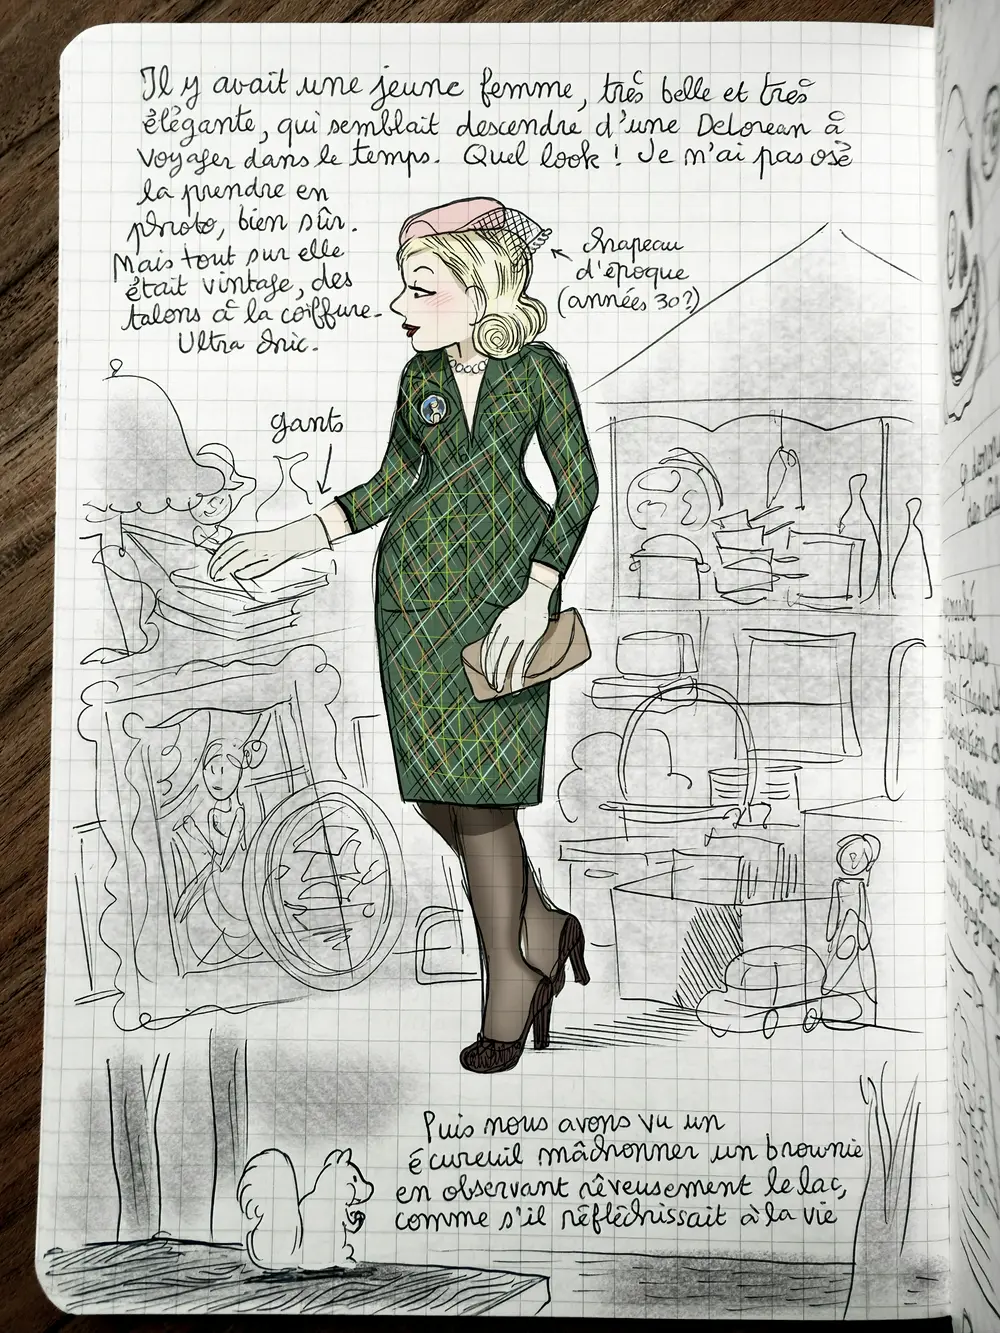 Il y avait une jeune femme, très belle et très
élégante, qui semblait descendre d'une Delorean à
voyager dans le temps. Quel look ! Je n'ai pas osé
la prendre en
photo, bien sûr.
Mais tout sur elle
était vintage, des
talons à la coiffure.
Ultra chic.
chapeau
d'époque
(années 30?)
gants
Puis nous avons vu un
écureuil mâchonner un brownie
en observant rêveusement le lac,
comme s'il réfléchissait à la vie